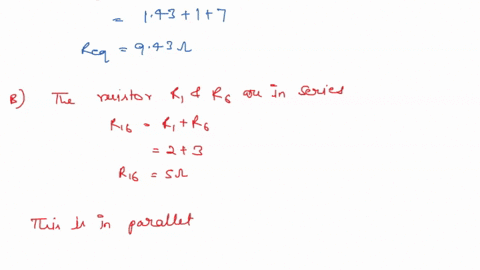 = 1.43 + 1 + 7
Req = 9.43 Ω
B) The resistor R1 & R6 are in series
R16 = R1 + R6
= 2 + 3
R16 = 5Ω
This is in parallel